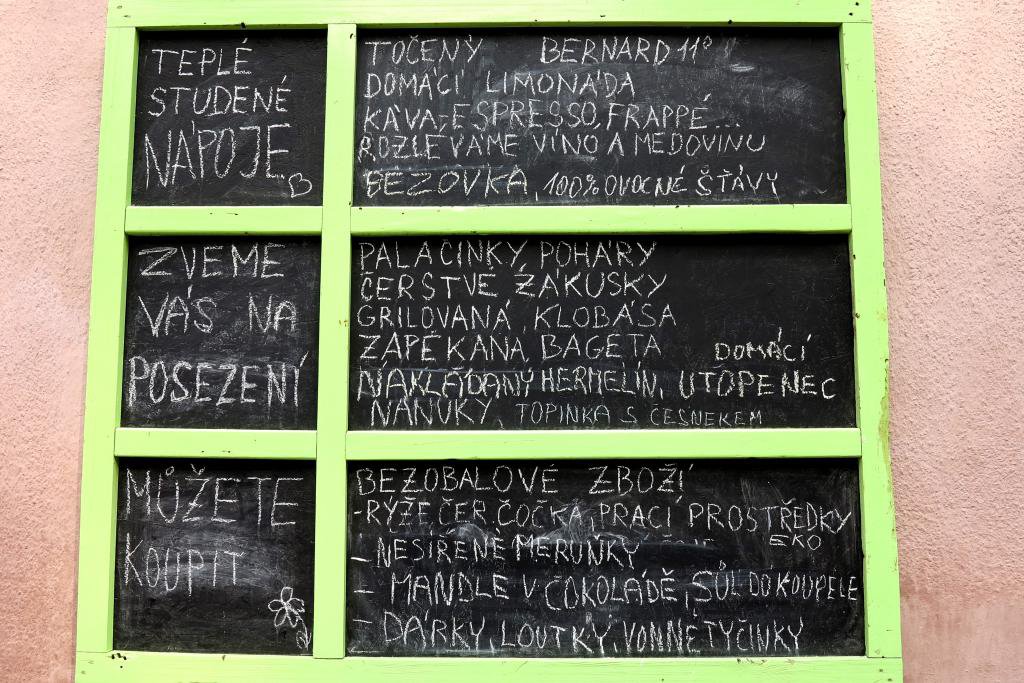 TEPLÉ
STUDENÉ
NÁPOJE
TOČENÝ BERNARD 11°
DOMÁCÍ LIMONÁDA
KÁVA-ESPRESSO, FRAPPÉ...
ROZLÉVÁME VÍNO A MEDOVINU
BEZOVKA, 100% OVOCNÉ ŠŤÁVY
ZVEME
VÁS NA
POSEZENÍ
PALAČINKY, POHÁRY
ČERSTVÉ ZÁKUSKY
GRILOVANÁ KLOBÁSA
ZAPÉKANÁ BAGETA
DOMÁCÍ
NAKLÁDANÝ HERMELÍN, UTOPENEC
NANUKY, TOPINKA S ČESNEKEM
MŮŽETE
KOUPIT
BEZOBALOVÉ ZBOŽÍ
-RÝŽE, ČER. ČOČKA, PRACÍ PROSTŘEDKY
EKO
- NESÍŘENÉ MERUŇKY
- MANDLE V ČOKOLÁDĚ, SŮL DO KOUPELE
- DÁRKY, LOUTKY, VONNÉ TYČINKY